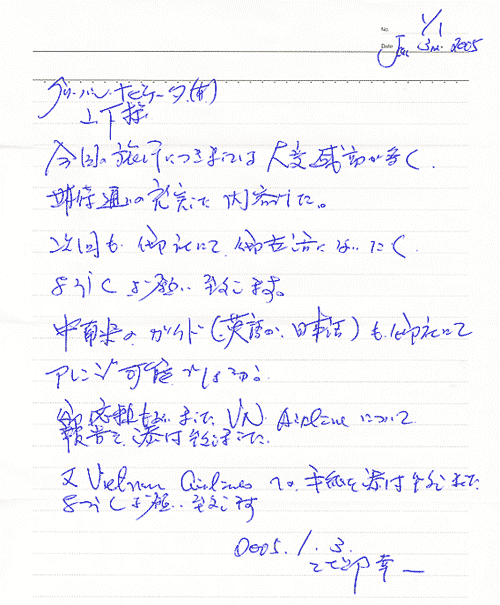 No. 1/1
Date Jan 3rd. 2005
グリーン・ナビゲータ(株)
山下様
今回の旅行につきましては 大変感動が多く、
期待通りの充実した内容でした。
次回も、御社にて、御世話になりたく
よろしくお願い致します。
中南米の ガイド(英語か、日本語)も、御社にて
アレンジ可能でしょうか。
御依頼ました VN Airline について
報告を添付致しました。
又 Vietnam Airlines への手紙を添付致しました
よろしくお願い致します
2005. 1. 3.
幸一